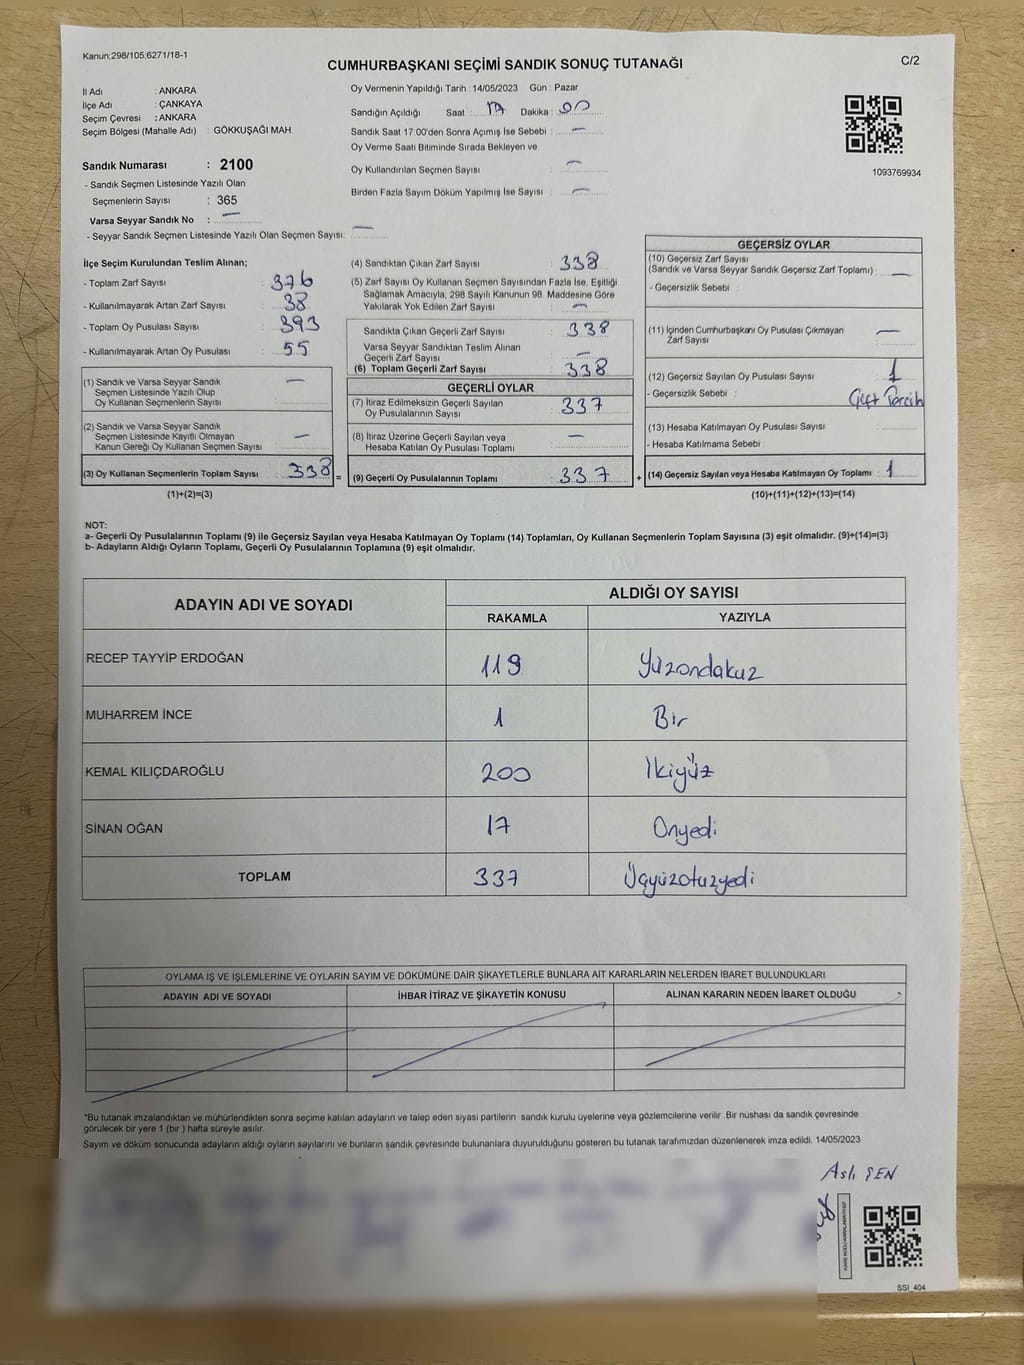 Kanun:298/105;6271/18-1
CUMHURBAŞKANI SEÇİMİ SANDIK SONUÇ TUTANAĞI
C/2
İl Adı : ANKARA
İlçe Adı : ÇANKAYA
Seçim Çevresi : ANKARA
Seçim Bölgesi (Mahalle Adı) : GÖKKUŞAĞI MAH.
Sandık Numarası : 2100
- Sandık Seçmen Listesinde Yazılı Olan
Seçmenlerin Sayısı : 365
Varsa Seyyar Sandık No : —
- Seyyar Sandık Seçmen Listesinde Yazılı Olan Seçmen Sayısı: —
Oy Vermenin Yapıldığı Tarih : 14/05/2023 Gün : Pazar
Sandığın Açıldığı Saat : 17 Dakika : 00
Sandık Saat 17:00'den Sonra Açımış İse Sebebi : —
Oy Verme Saati Bitiminde Sırada Bekleyen ve
Oy Kullandırılan Seçmen Sayısı : —
Birden Fazla Sayım Döküm Yapılmış İse Sayısı : —
1093769934
İlçe Seçim Kurulundan Teslim Alınan;
- Toplam Zarf Sayısı : 376
- Kullanılmayarak Artan Zarf Sayısı : 38
- Toplam Oy Pusulası Sayısı : 393
- Kullanılmayarak Artan Oy Pusulası : 55
(1) Sandık ve Varsa Seyyar Sandık —
Seçmen Listesinde Yazılı Olup
Oy Kullanan Seçmenlerin Sayısı
(2) Sandık ve Varsa Seyyar Sandık
Seçmen Listesinde Kayıtlı Olmayan
Kanun Gereği Oy Kullanan Seçmen Sayısı : —
(3) Oy Kullanan Seçmenlerin Toplam Sayısı : 338 =
(1)+(2)=(3)
(4) Sandıktan Çıkan Zarf Sayısı : 338
(5) Zarf Sayısı Oy Kullanan Seçmen Sayısından Fazla İse, Eşitliği
Sağlamak Amacıyla, 298 Sayılı Kanunun 98. Maddesine Göre
Yakılarak Yok Edilen Zarf Sayısı : —
Sandıkta Çıkan Geçerli Zarf Sayısı : 338
Varsa Seyyar Sandıktan Teslim Alınan
Geçerli Zarf Sayısı : —
(6) Toplam Geçerli Zarf Sayısı : 338
GEÇERLİ OYLAR
(7) İtiraz Edilmeksizin Geçerli Sayılan
Oy Pusulalarının Sayısı : 337
(8) İtiraz Üzerine Geçerli Sayılan veya
Hesaba Katılan Oy Pusulası Toplamı : —
(9) Geçerli Oy Pusulalarının Toplamı : 337 +
GEÇERSİZ OYLAR
(10) Geçersiz Zarf Sayısı
(Sandık ve Varsa Seyyar Sandık Geçersiz Zarf Toplamı) : —
- Geçersizlik Sebebi :
(11) İçinden Cumhurbaşkanı Oy Pusulası Çıkmayan
Zarf Sayısı : —
(12) Geçersiz Sayılan Oy Pusulası Sayısı : 1
- Geçersizlik Sebebi : Çift Tercih
(13) Hesaba Katılmayan Oy Pusulası Sayısı :
- Hesaba Katılmama Sebebi :
(14) Geçersiz Sayılan veya Hesaba Katılmayan Oy Toplamı : 1
(10)+(11)+(12)+(13)=(14)
NOT:
a- Geçerli Oy Pusulalarının Toplamı (9) ile Geçersiz Sayılan veya Hesaba Katılmayan Oy Toplamı (14) Toplamları, Oy Kullanan Seçmenlerin Toplam Sayısına (3) eşit olmalıdır. (9)+(14)=(3)
b- Adayların Aldığı Oyların Toplamı, Geçerli Oy Pusulalarının Toplamına (9) eşit olmalıdır.
ADAYIN ADI VE SOYADI
ALDIĞI OY SAYISI
RAKAMLA YAZIYLA
RECEP TAYYİP ERDOĞAN 119 Yüzondakuz
MUHARREM İNCE 1 Bir
KEMAL KILIÇDAROĞLU 200 İkiyüz
SİNAN OĞAN 17 Onyedi
TOPLAM 337 Üçyüzotuzyedi
OYLAMA İŞ VE İŞLEMLERİNE VE OYLARIN SAYIM VE DÖKÜMÜNE DAİR ŞİKAYETLERLE BUNLARA AİT KARARLARIN NELERDEN İBARET BULUNDUKLARI
ADAYIN ADI VE SOYADI İHBAR İTİRAZ VE ŞİKAYETİN KONUSU ALINAN KARARIN NEDEN İBARET OLDUĞU
*Bu tutanak imzalandıktan ve mühürlendikten sonra seçime katılan adayların ve talep eden siyasi partilerin sandık kurulu üyelerine veya gözlemcilerine verilir. Bir nüshası da sandık çevresinde
görülecek bir yere 1 (bir) hafta süreyle asılır.
Sayım ve döküm sonucunda adayların aldığı oyların sayılarını ve bunların sandık çevresinde bulunanlara duyurulduğunu gösteren bu tutanak tarafımızdan düzenlenerek imza edildi. 14/05/2023
Aslı ŞEN
KARE KODU KARALAMAYINIZ!
SSI_404